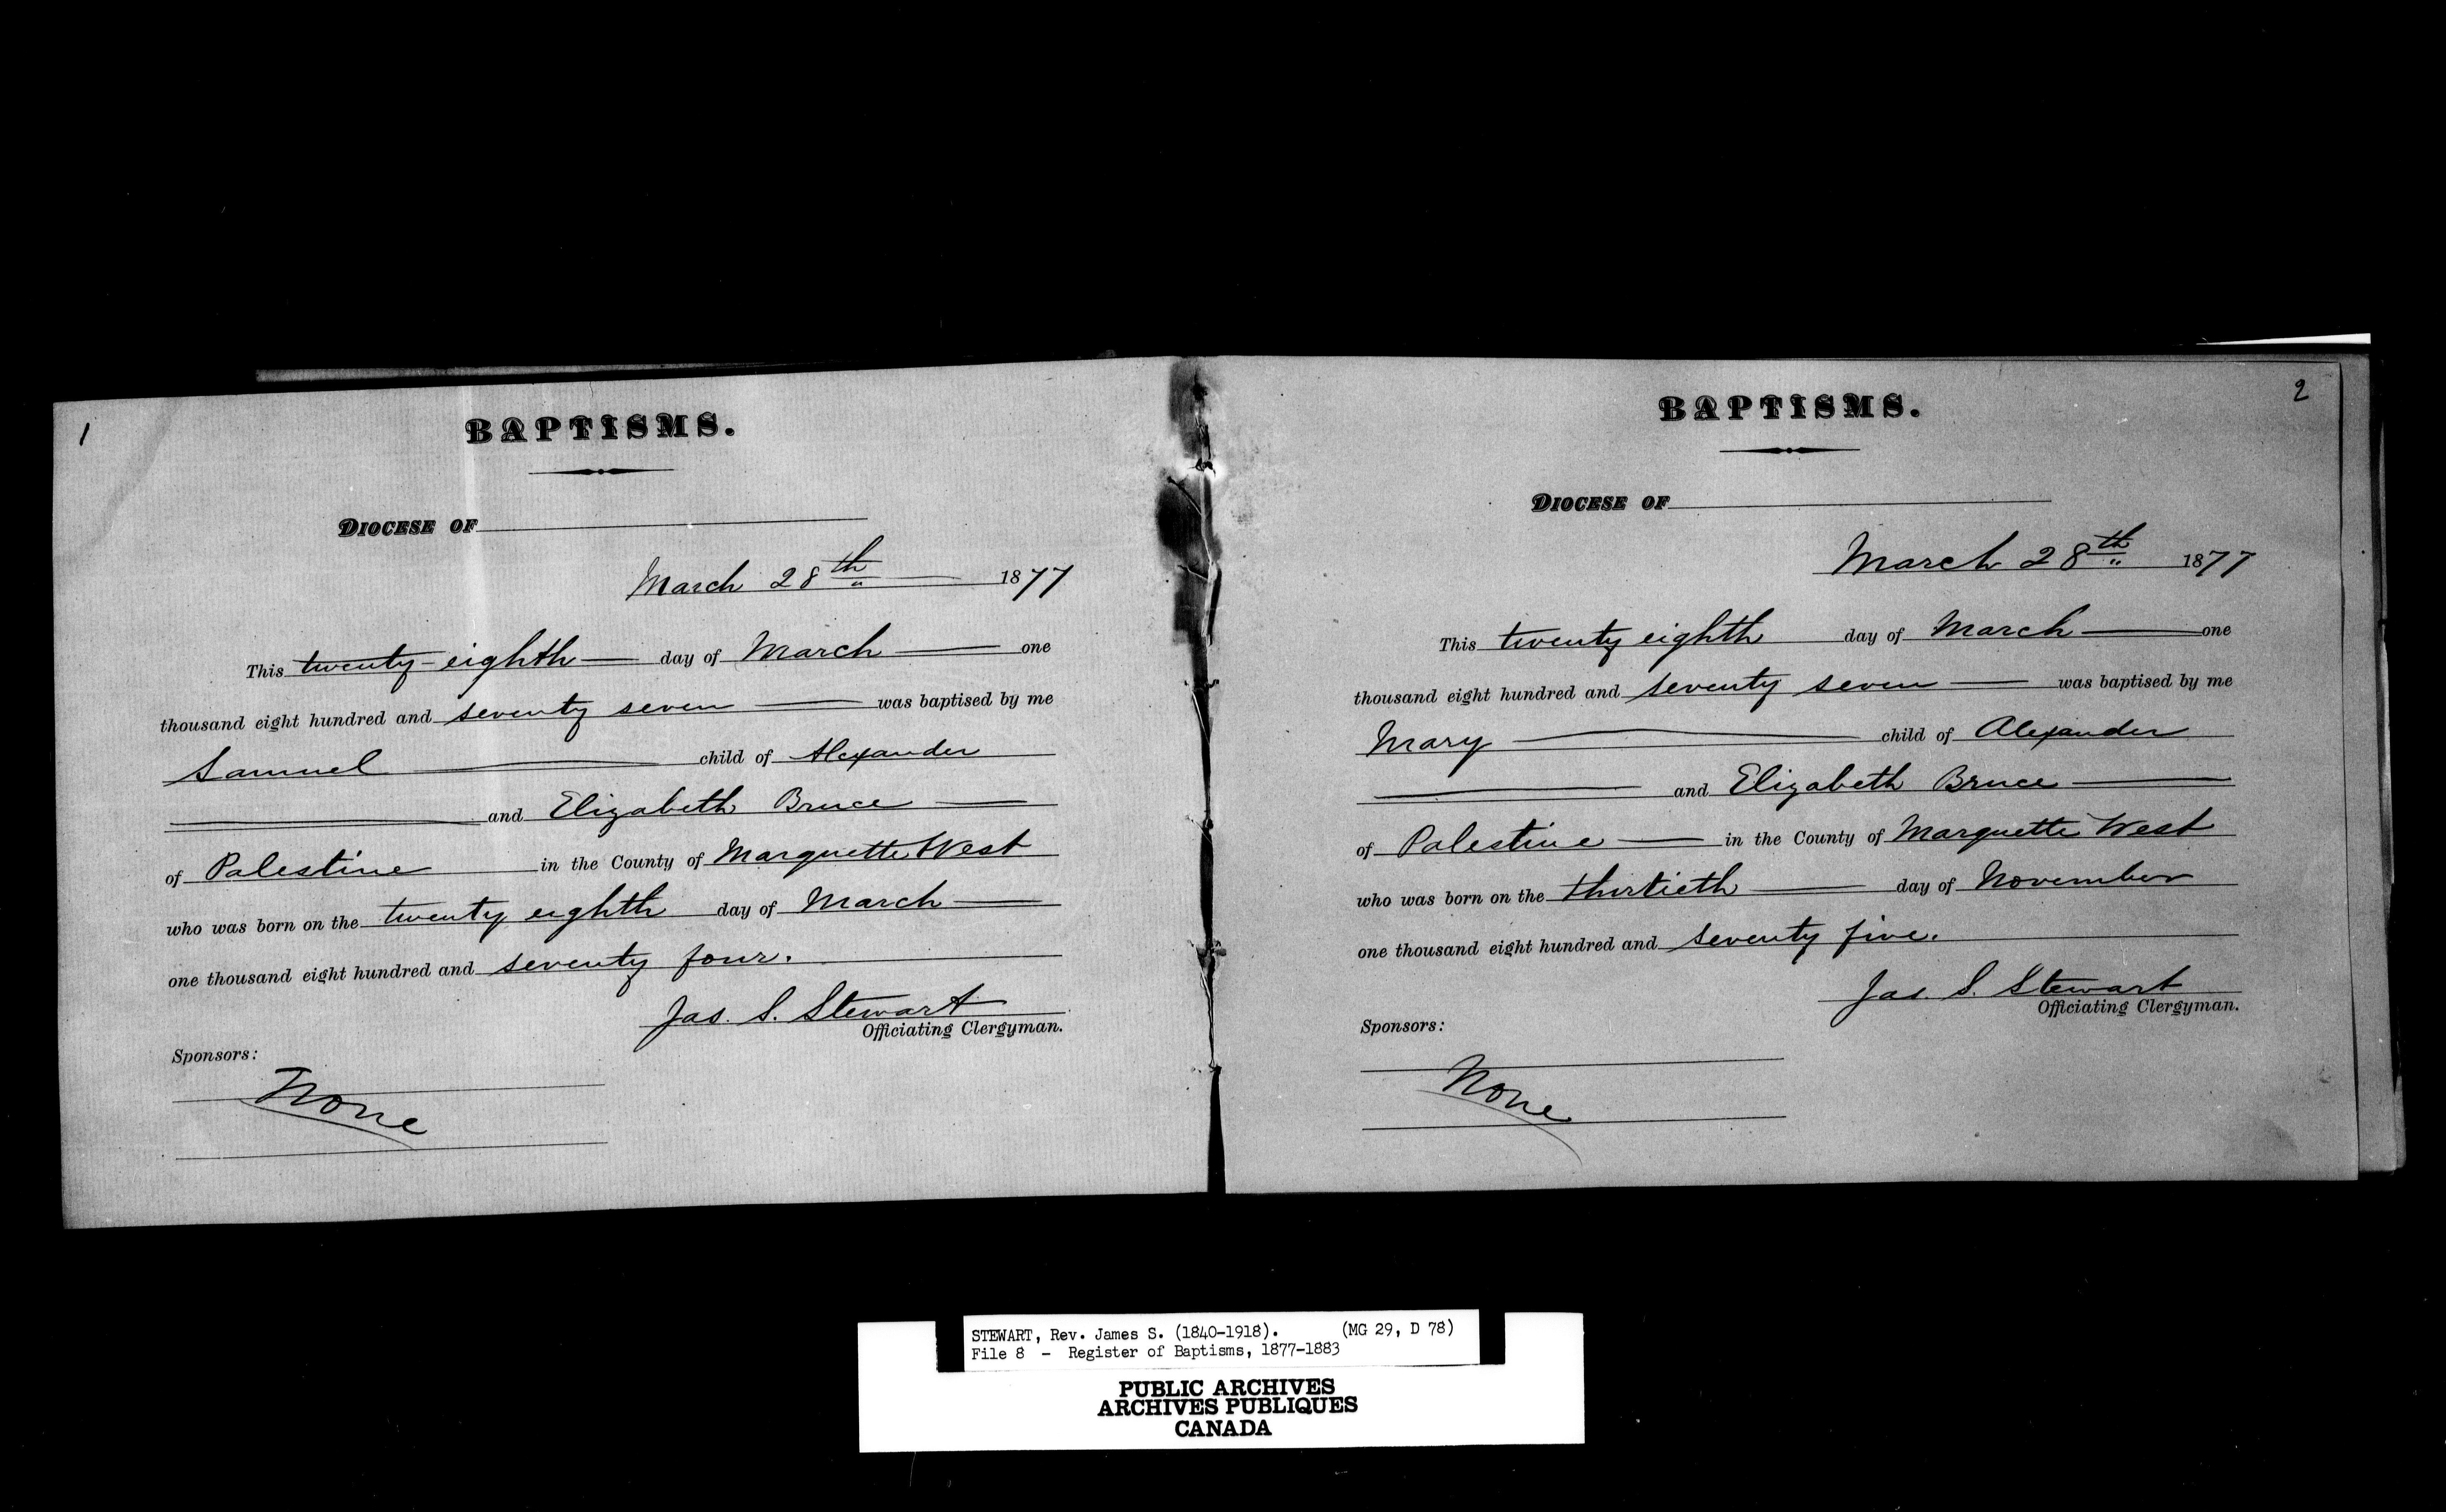 1
BAPTISMS.
DIOCESE OF
March 28th 1877
This twenty-eighth day of March one
thousand eight hundred and seventy seven was baptised by me
Samuel child of Alexander
and Elizabeth Bruce
of Palestine in the County of Marquette West
who was born on the twenty eighth day of March
one thousand eight hundred and seventy four.
Jas. S. Stewart
Officiating Clergyman.
Sponsors:
None
2
BAPTISMS.
DIOCESE OF
March 28th 1877
This twenty eighth day of March one
thousand eight hundred and seventy seven was baptised by me
Mary child of Alexander
and Elizabeth Bruce
of Palestine in the County of Marquette West
who was born on the thirtieth day of November
one thousand eight hundred and seventy five.
Jas. S. Stewart
Officiating Clergyman.
Sponsors:
None
STEWART, Rev. James S. (1840-1918). (MG 29, D 78)
File 8 - Register of Baptisms, 1877-1883
PUBLIC ARCHIVES
ARCHIVES PUBLIQUES
CANADA